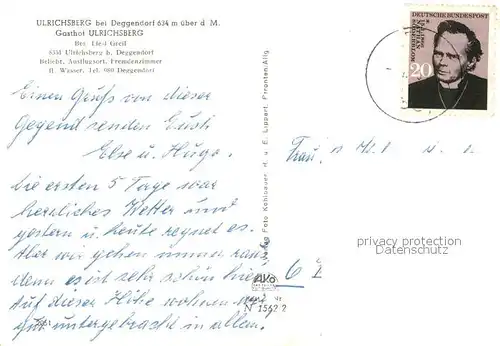 ULRICHSBERG bei Deggendorf 634 m über d. M.
Gasthof ULRICHSBERG
Bes. Liesl Greif
8351 Ulrichsberg b. Deggendorf
Beliebt. Ausflugsort. Fremdenzimmer
fl. Wasser. Tel. 980 Deggendorf
Einen Gruß von dieser
Gegend senden Euch
Else u. Hugo.
Die ersten 5 Tage war
herrliches Wetter und
gestern u. heute regnet es.
Aber wir gehen immer raus
denn es ist sehr schön hier
auf dieser Höhe wohnen wir
gut untergebracht in allem.
Verlag Foto Kohlbauer H. u. E. Lippert, Pfronten-Allg.
DEUTSCHE BUNDESPOST
NATHAN SÖDERBLOM
20
Frau
privacy protection
Datenschutz
6
AKO
N 1562 2